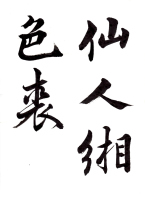 仙人緗
色裘